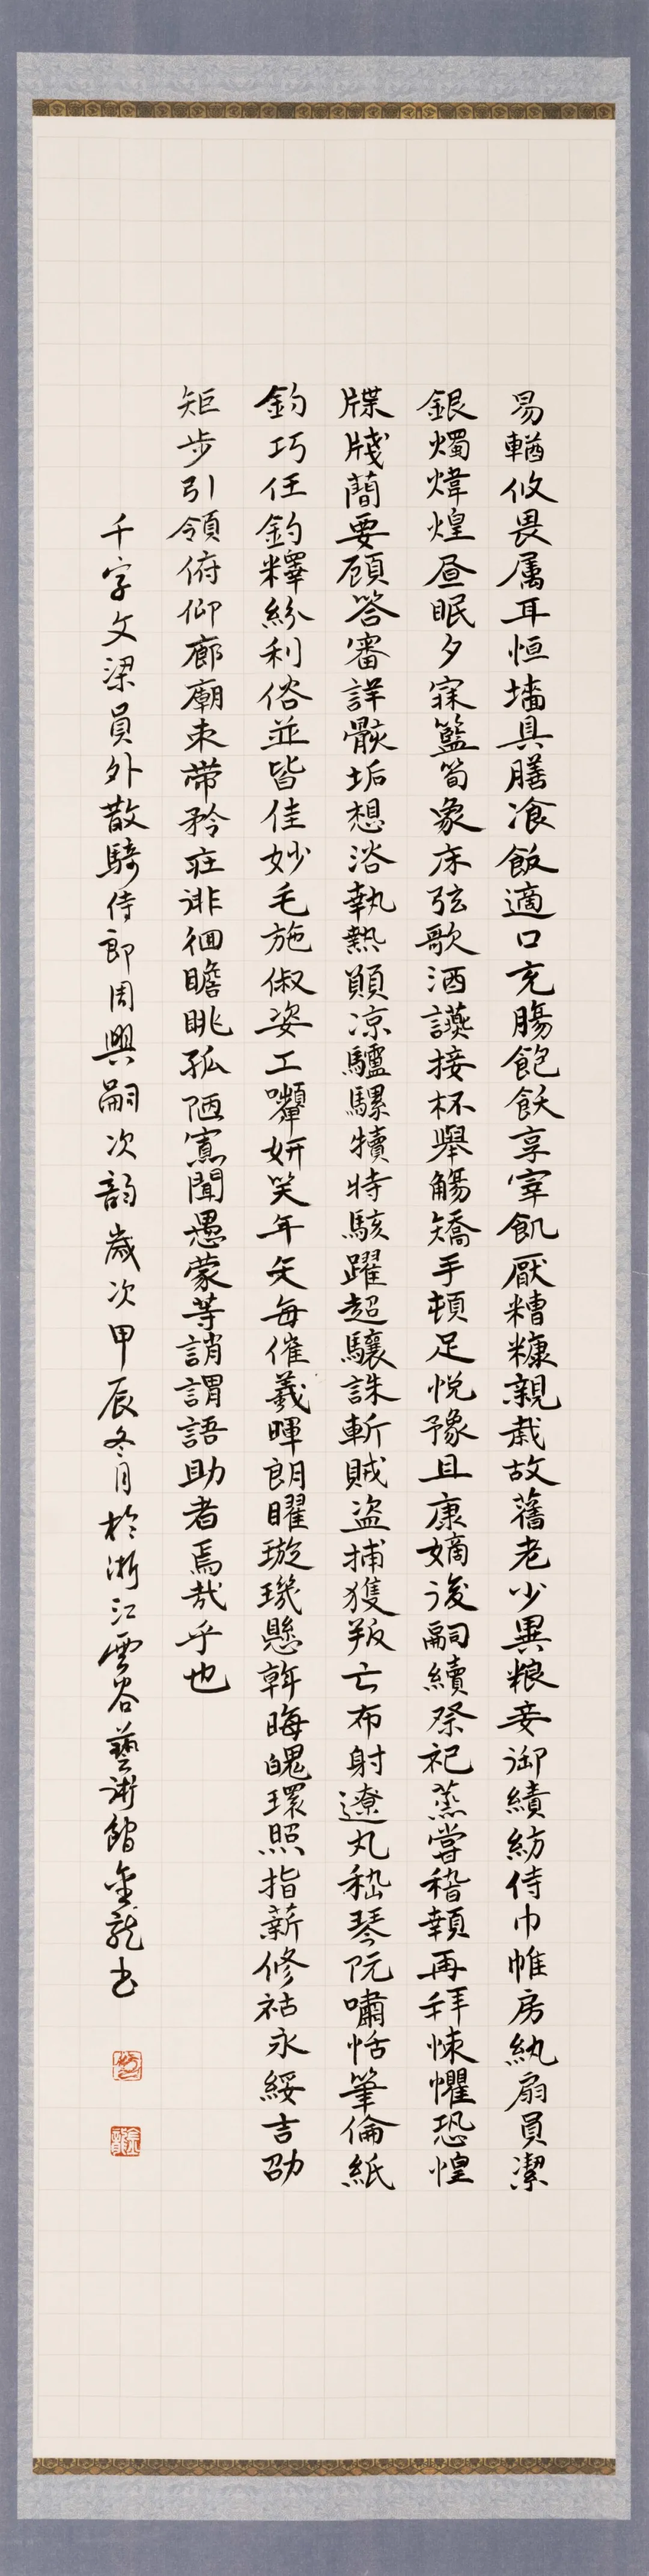 易輶攸畏属耳恒墻具膳飡飯適口充腸飽飫享宰飢厭糟糠親戚故舊老少異粮妾御績紡侍巾帷房紈扇員潔
銀燭煒煌昼眠夕寐籃筍象床弦歌酒讌接杯舉觴矯手頓足悦豫且康嫡後嗣續祭祀蒸嘗稽顙再拜悚懼恐惶
牒牋蕳要顧答審詳骸垢想浴執熱願凉驢騾犢特駭躍超驤誅斬賊盗捕獲叛亡布射遼丸嵇琴阮嘯恬筆倫紙
鈞巧任釣釋紛利俗並皆佳妙毛施俶姿工嚬妍笑年矢每催羲暉朗曜璇璣懸斡晦魄環照指薪修祜永綏吉劭
矩步引領俯仰廊廟束帶矜莊徘徊瞻眺孤陋寡聞愚蒙等誚謂語助者焉哉乎也
千字文梁員外散騎侍郎周興嗣次韵歲次甲辰冬月於浙江雲谷藝術館金龍书